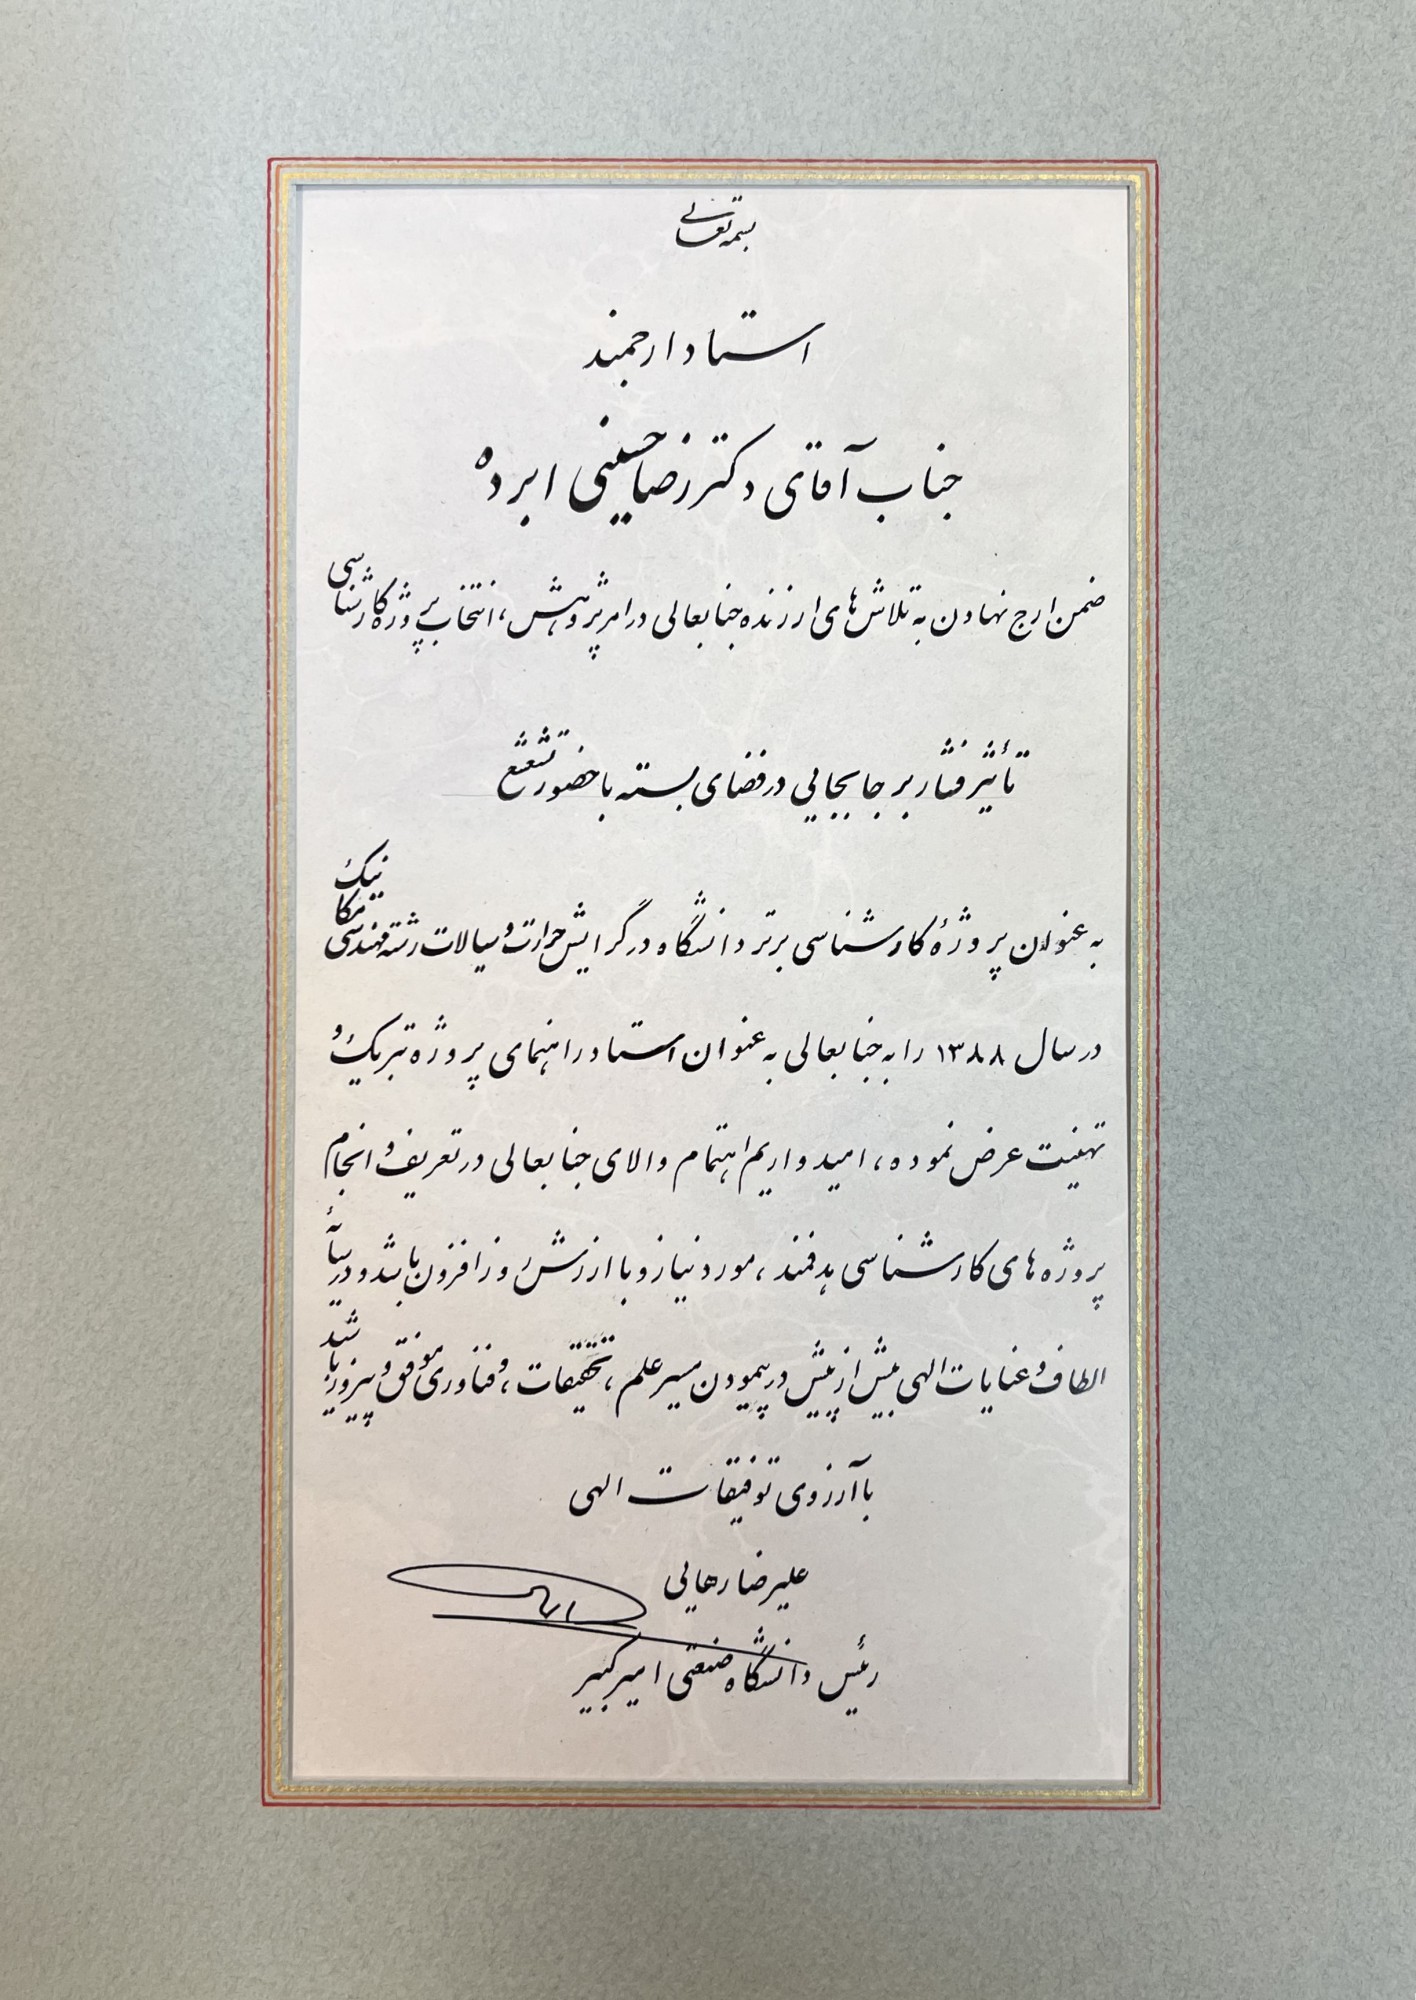 بسمه تعالی
استاد ارجمند
جناب آقای دکتر رضا حسینی ابرده
ضمن ارج نهادن به تلاش‌های ارزنده جنابعالی در امر پژوهش، انتخاب پروژه کارشناسی
تأثیر فشار بر جابجایی در فضای بسته با حضور تشعشع
به عنوان پروژهٔ کارشناسی برتر دانشگاه در گرایش حرارت و سیالات رشته مهندسی مکانیک
در سال ۱۳۸۸ را به جنابعالی به عنوان استاد راهنمای پروژه تبریک و
تهنیت عرض نموده، امیدواریم اهتمام والای جنابعالی در تعریف و انجام
پروژه‌های کارشناسی هدفمند، مورد نیاز و با ارزش روزافزون باشد و در سایهٔ
الطاف و عنایات الهی بیش از پیش در پیمودن مسیر علم، تحقیقات، و فناوری موفق و پیروز باشید
با آرزوی توفیقات الهی
علیرضا رهایی
رئیس دانشگاه صنعتی امیرکبیر